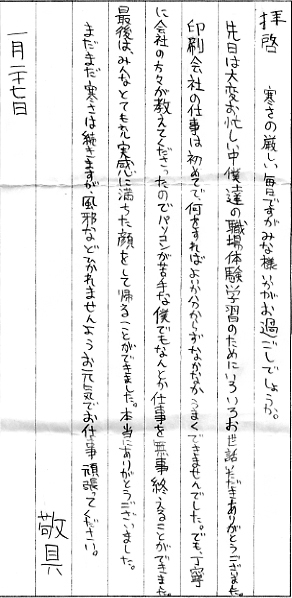 拝啓　寒さの厳しい毎日ですがみな様いかがお過ごしでしょうか。
先日は大変お忙しい中僕達の職場体験学習のためにいろいろお世話いただきありがとうございました。
印刷会社の仕事は初めてで、何をすればよいか分からずなかなかうまくできませんでした。でも、丁寧
に会社の方々が教えてくださったのでパソコンが苦手な僕でもなんとか仕事を無事終えることができました。
最後は、みんなとても充実感に満ちた顔をして帰ることができました。本当にありがとうございました。
まだまだ寒さは続きますが、風邪などひかれませんようお元気でお仕事頑張ってください。
敬具
一月二十七日